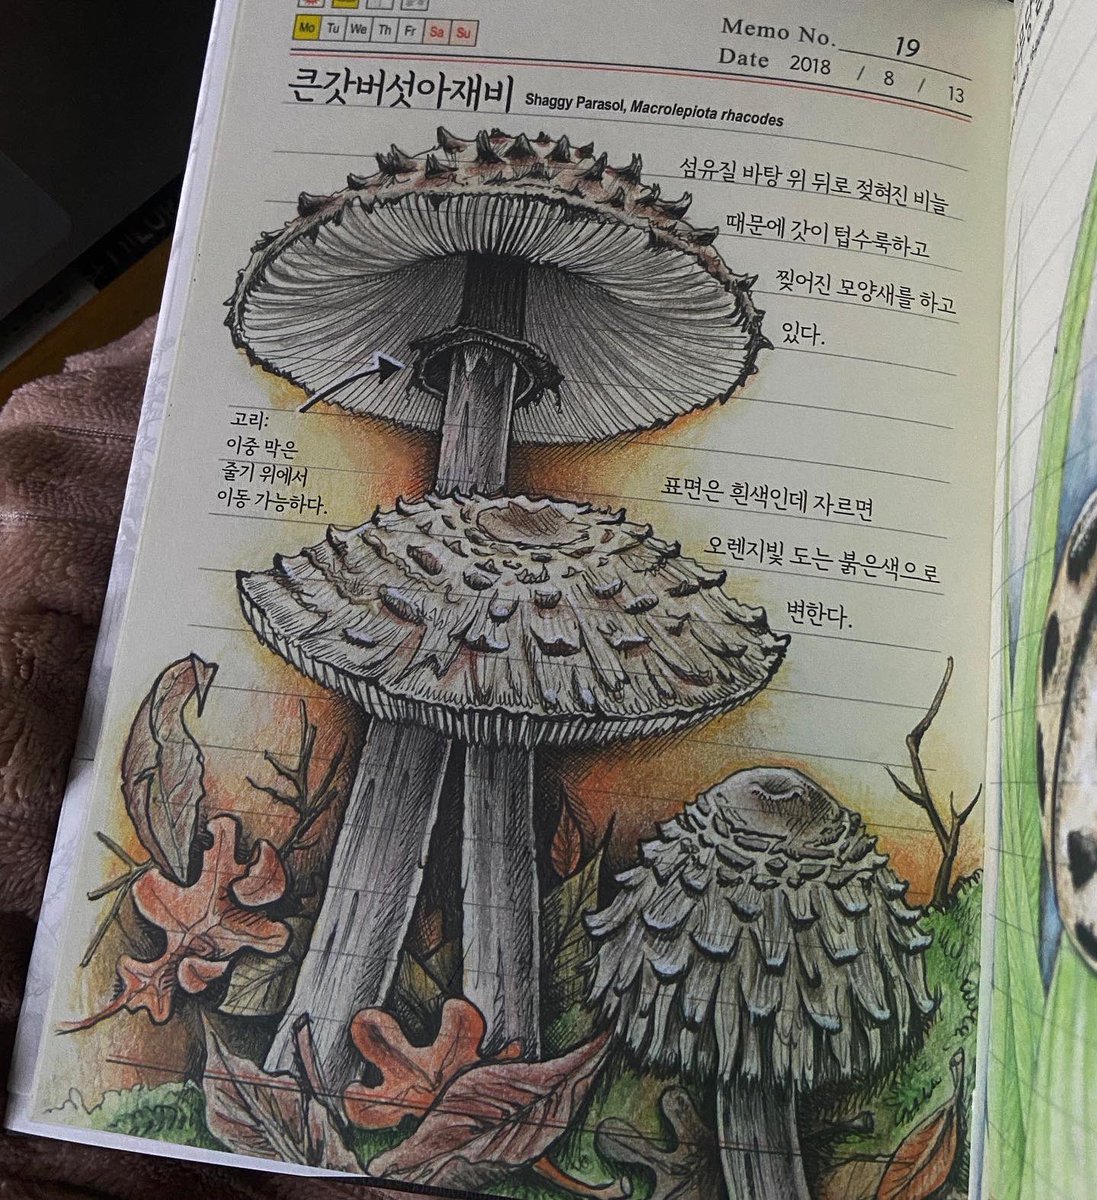 Mo Tu We Th Fr Sa Su
Memo No. 19
Date 2018 / 8 / 13
큰갓버섯아재비 Shaggy Parasol, Macrolepiota rhacodes
섬유질 바탕 위 뒤로 젖혀진 비늘
때문에 갓이 텁수룩하고
찢어진 모양새를 하고
있다.
고리:
이중 막은
줄기 위에서
이동 가능하다.
표면은 흰색인데 자르면
오렌지빛 도는 붉은색으로
변한다.